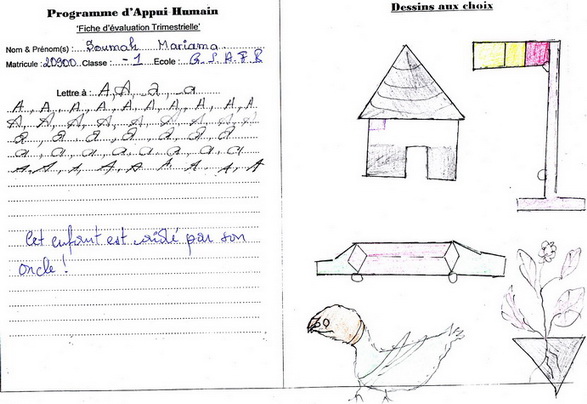 Programme d'Appui Humain
'Fiche d'évaluation Trimestrielle'
Nom & Prénom(s) : Soumah Mariama
Matricule : 20900 Classe : -1 Ecole : G.S.A.F.R
Lettre à : A, A, a, a
A, A, A, A, A, A, A, A, A
A, A, A, A, A, A, A, A, A
a, a, a, a, a, a, a
a, a, a, a, a, a, a, a
A, A, A, A, A, A, A, A, A
Cet enfant est aidé par son
oncle !
Dessins aux choix